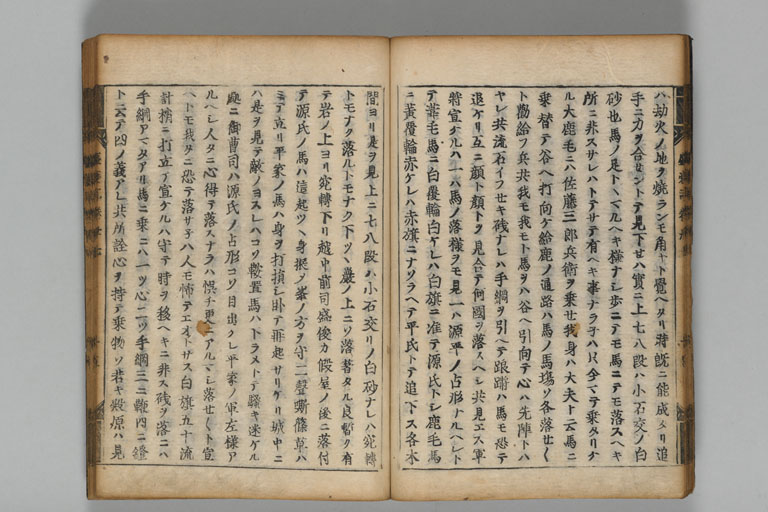 ハ劫火ノ地ヲ焼ランモ角ヤト覺ヘタリ時既ニ能成タリ追
手ニ力ヲ合セントテ見下セハ實ニ上七八段ハ小石交ノ白
砂也馬ノ足トヽマルヘキ様ナシ歩ニテモ馬ニテモ落スヘキ
所ニ非スサレハトテサテ有ヘキ事ナラネハ只今マテ乗タリケ
ル大鹿毛ニハ佐藤三郎兵衛ヲ乗セ我身ハ大夫ト云馬ニ
乗替テ谷ヘ打向ケ給鹿ノ通路ハ馬ノ馬塲ソ各落セ〱
ト勸給フ兵共我モ我モト馬ヲハ谷ヘ引向テ心ハ先陣トハ
ヤレ共流石イフセキ残ナレハ手綱ヲ引ヘテ踉蹡ハ馬モ恐テ
退ケリ互ニ顔ト顔トヲ見合テ何國ヲ落スヘシ共見エス軍
將宣ケルハ一ハ馬ノ落様ヲモ見一ハ源平ノ占形ナルヘシト
テ葦毛馬ニ白覆輪白ケレハ白旗ニ准テ源氏トシ鹿毛馬
ニ黄覆輪赤ケレハ赤旗ニナソラヘテ平氏トテ追下ス各木
間ヨリ是ヲ見上ニ七八段ハ小石交リノ白砂ナレハ宛轉
トモナク落ルトモナク下ツヽ巖ノ上ニソ落着タル良暫ク有
テ岩ノ上ヨリ宛轉下リ越中前司盛俊カ假屋ノ後ニ落付
テ源氏ノ馬ハ這起ツヽ身振ヲ峯ノ方ヲ守二聲嘶篠草ハ
ミテ立リ平家ノ馬ハ身ヲ打損シ臥テ再起サリケリ城中ニ
ハ是ヲ見テ敵ノヨスレハコソ鞍置馬ハトラメトテ騒キ迷ケル
處ニ御曹司ハ源氏ノ占形コソ目出タレ平家ノ軍左様ア
ルヘシ人タニ心得テ落スナラハ惧チ更ニアルマシ落セ〱ト宣
ヘトモ我タニ恐テ落サ子ハ人モ怖テエオトサス白旗五十流
計梢ニ打立テ宣ケルハ守テ時ヲ移ヘキニ非ス残ヲ落ニハ
手綱アマタアリ馬ニ乗ニハ一ツ心二ツ手綱三ニ鞭四ニ鐙
ト云テ四ノ義アレ共所詮心ヲ持テ乗物ソ若キ殿原ハ見